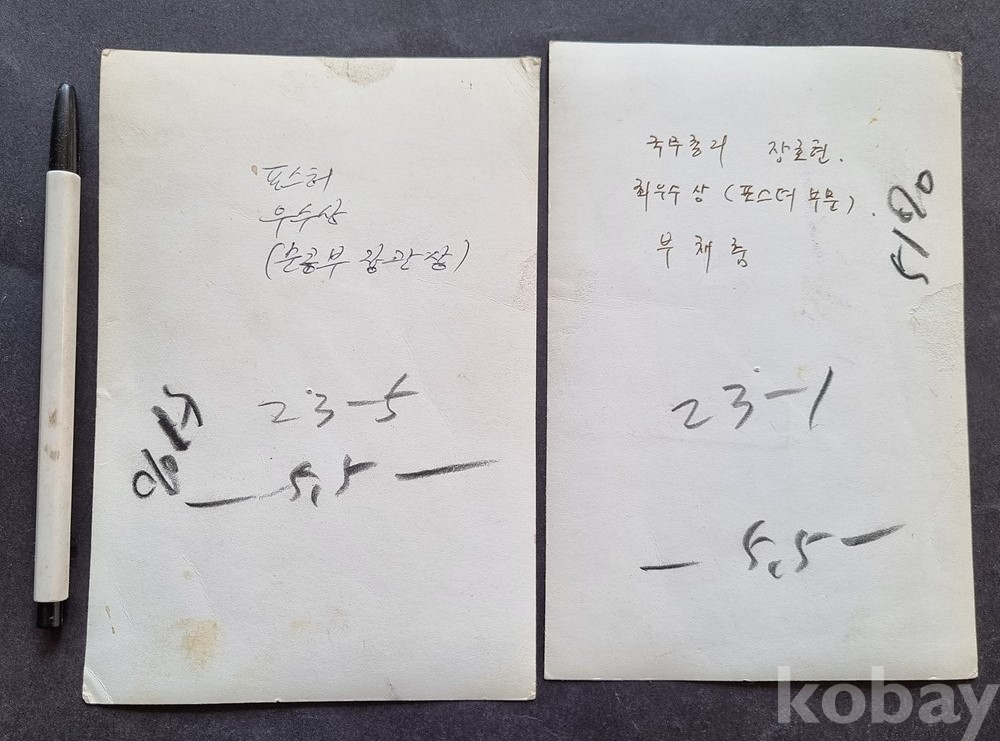 포스터
우수상
(문공부 장관상)
23-5
51%
— 5.5 —
국무총리 장호현.
최우수상 (포스터 부문).
부채춤
51%
23-1
— 5.5 —
kobay